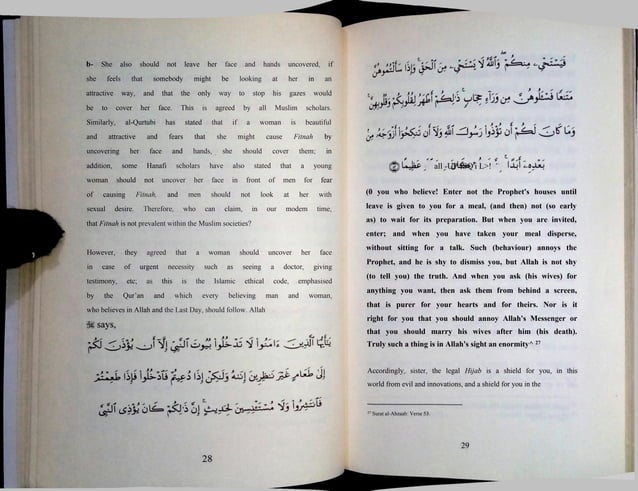 b- She also should not leave her face and hands uncovered, if
she feels that somebody might be looking at her in an
attractive way, and that the only way to stop his gazes would
be to cover her face. This is agreed by all Muslim scholars.
Similarly, al-Qurtubi has stated that if a woman is beautiful
and attractive and fears that she might cause Fitnah by
uncovering her face and hands, she should cover them; in
addition, some Hanafi scholars have also stated that a young
woman should not uncover her face in front of men for fear
of causing Fitnah, and men should not look at her with
sexual desire. Therefore, who can claim, in our modem time,
that Fitnah is not prevalent within the Muslim societies?
However, they agreed that a woman should uncover her face
in case of urgent necessity such as seeing a doctor, giving
testimony, etc; as this is the Islamic ethical code, emphasised
by the Qur'an and which every believing man and woman,
who believes in Allah and the Last Day, should follow. Allah
ﷻ says,
يَٰٓأَيُّهَا ٱلَّذِينَ ءَامَنُوا۟ لَا تَدْخُلُوا۟ بُيُوتَ ٱلنَّبِىِّ إِلَّآ أَن يُؤْذَنَ لَكُمْ
إِلَىٰ طَعَامٍ غَيْرَ نَٰظِرِينَ إِنَىٰهُ وَلَٰكِنْ إِذَا دُعِيتُمْ فَٱدْخُلُوا۟ فَإِذَا طَعِمْتُمْ
فَٱنتَشِرُوا۟ وَلَا مُسْتَـْٔنِسِينَ لِحَدِيثٍ ۚ إِنَّ ذَٰلِكُمْ كَانَ يُؤْذِى ٱلنَّبِىَّ
28
فَيَسْتَحْىِۦ مِنكُمْ ۖ وَٱللَّهُ لَا يَسْتَحْىِۦ مِنَ ٱلْحَقِّ ۚ وَإِذَا سَأَلْتُمُوهُنَّ
مَتَٰعًا فَسْـَٔلُوهُنَّ مِن وَرَآءِ حِجَابٍ ۚ ذَٰلِكُمْ أَطْهَرُ لِقُلُوبِكُمْ وَقُلُوبِهِنَّ ۚ
وَمَا كَانَ لَكُمْ أَن تُؤْذُوا۟ رَسُولَ ٱللَّهِ وَلَآ أَن تَنكِحُوٓا۟ أَزْوَٰجَهُۥ مِنۢ
بَعْدِهِۦٓ أَبَدًا ۚ عَظِيمًا
(0 you who believe! Enter not the Prophet's houses until
leave is given to you for a meal, (and then) not (so early
as) to wait for its preparation. But when you are invited,
enter; and when you have taken your meal disperse,
without sitting for a talk. Such (behaviour) annoys the
Prophet, and he is shy to dismiss you, but Allah is not shy
(to tell you) the truth. And when you ask (his wives) for
anything you want, then ask them from behind a screen,
that is purer for your hearts and for theirs. Nor is it
right for you that you should annoy Allah's Messenger or
that you should marry his wives after him (his death).
Truly such a thing is in Allah's sight an enormity^ 27
Accordingly, sister, the legal Hijab is a shield for you, in this
world from evil and innovations, and a shield for you in the
27 Surat al-Ahzaab: Verse 53.
29